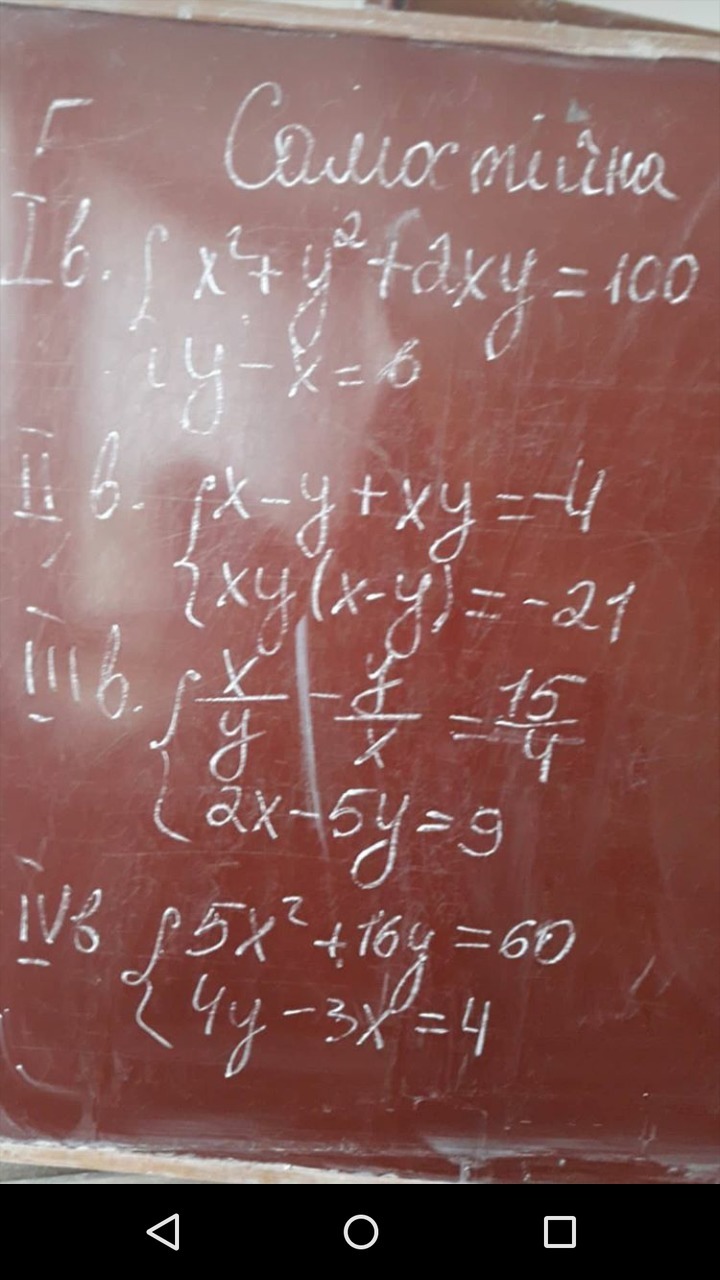 Самостійна
I в. { x² + y² + 2xy = 100
y - x = 6
II в. { x - y + xy = -4
xy(x-y) = -21
III в. { x/y - y/x = 15/4
2x - 5y = 9
IV в { 5x² + 16y = 60
4y - 3x = 4